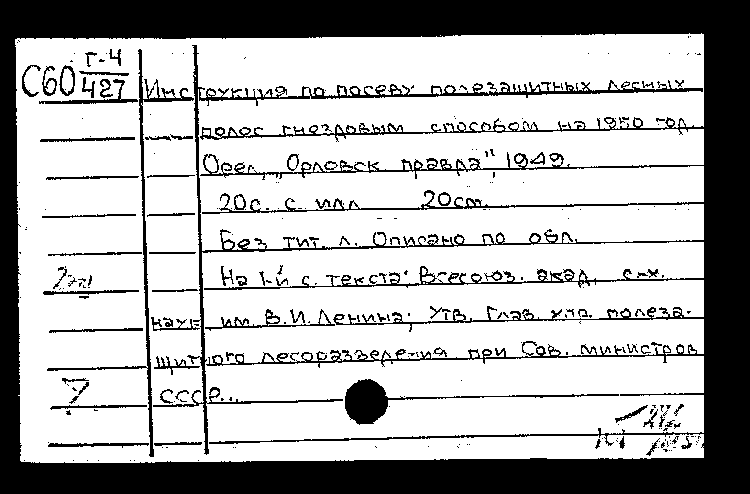 Г-4
С60 427 Инструкция по посеву полезащитных лесных
полос гнездовым способом на 1950 год.
Орел, „Орловск правда", 1949.
20с. с илл 20см.
Без тит. л. Описано по обл.
На 1-й с. текста: Всесоюз. акад. с-х.
2эл
наук им. В.И. Ленина; Утв. Глав. упр. полеза-
щитного лесоразведения при Сов. министров
СССР...